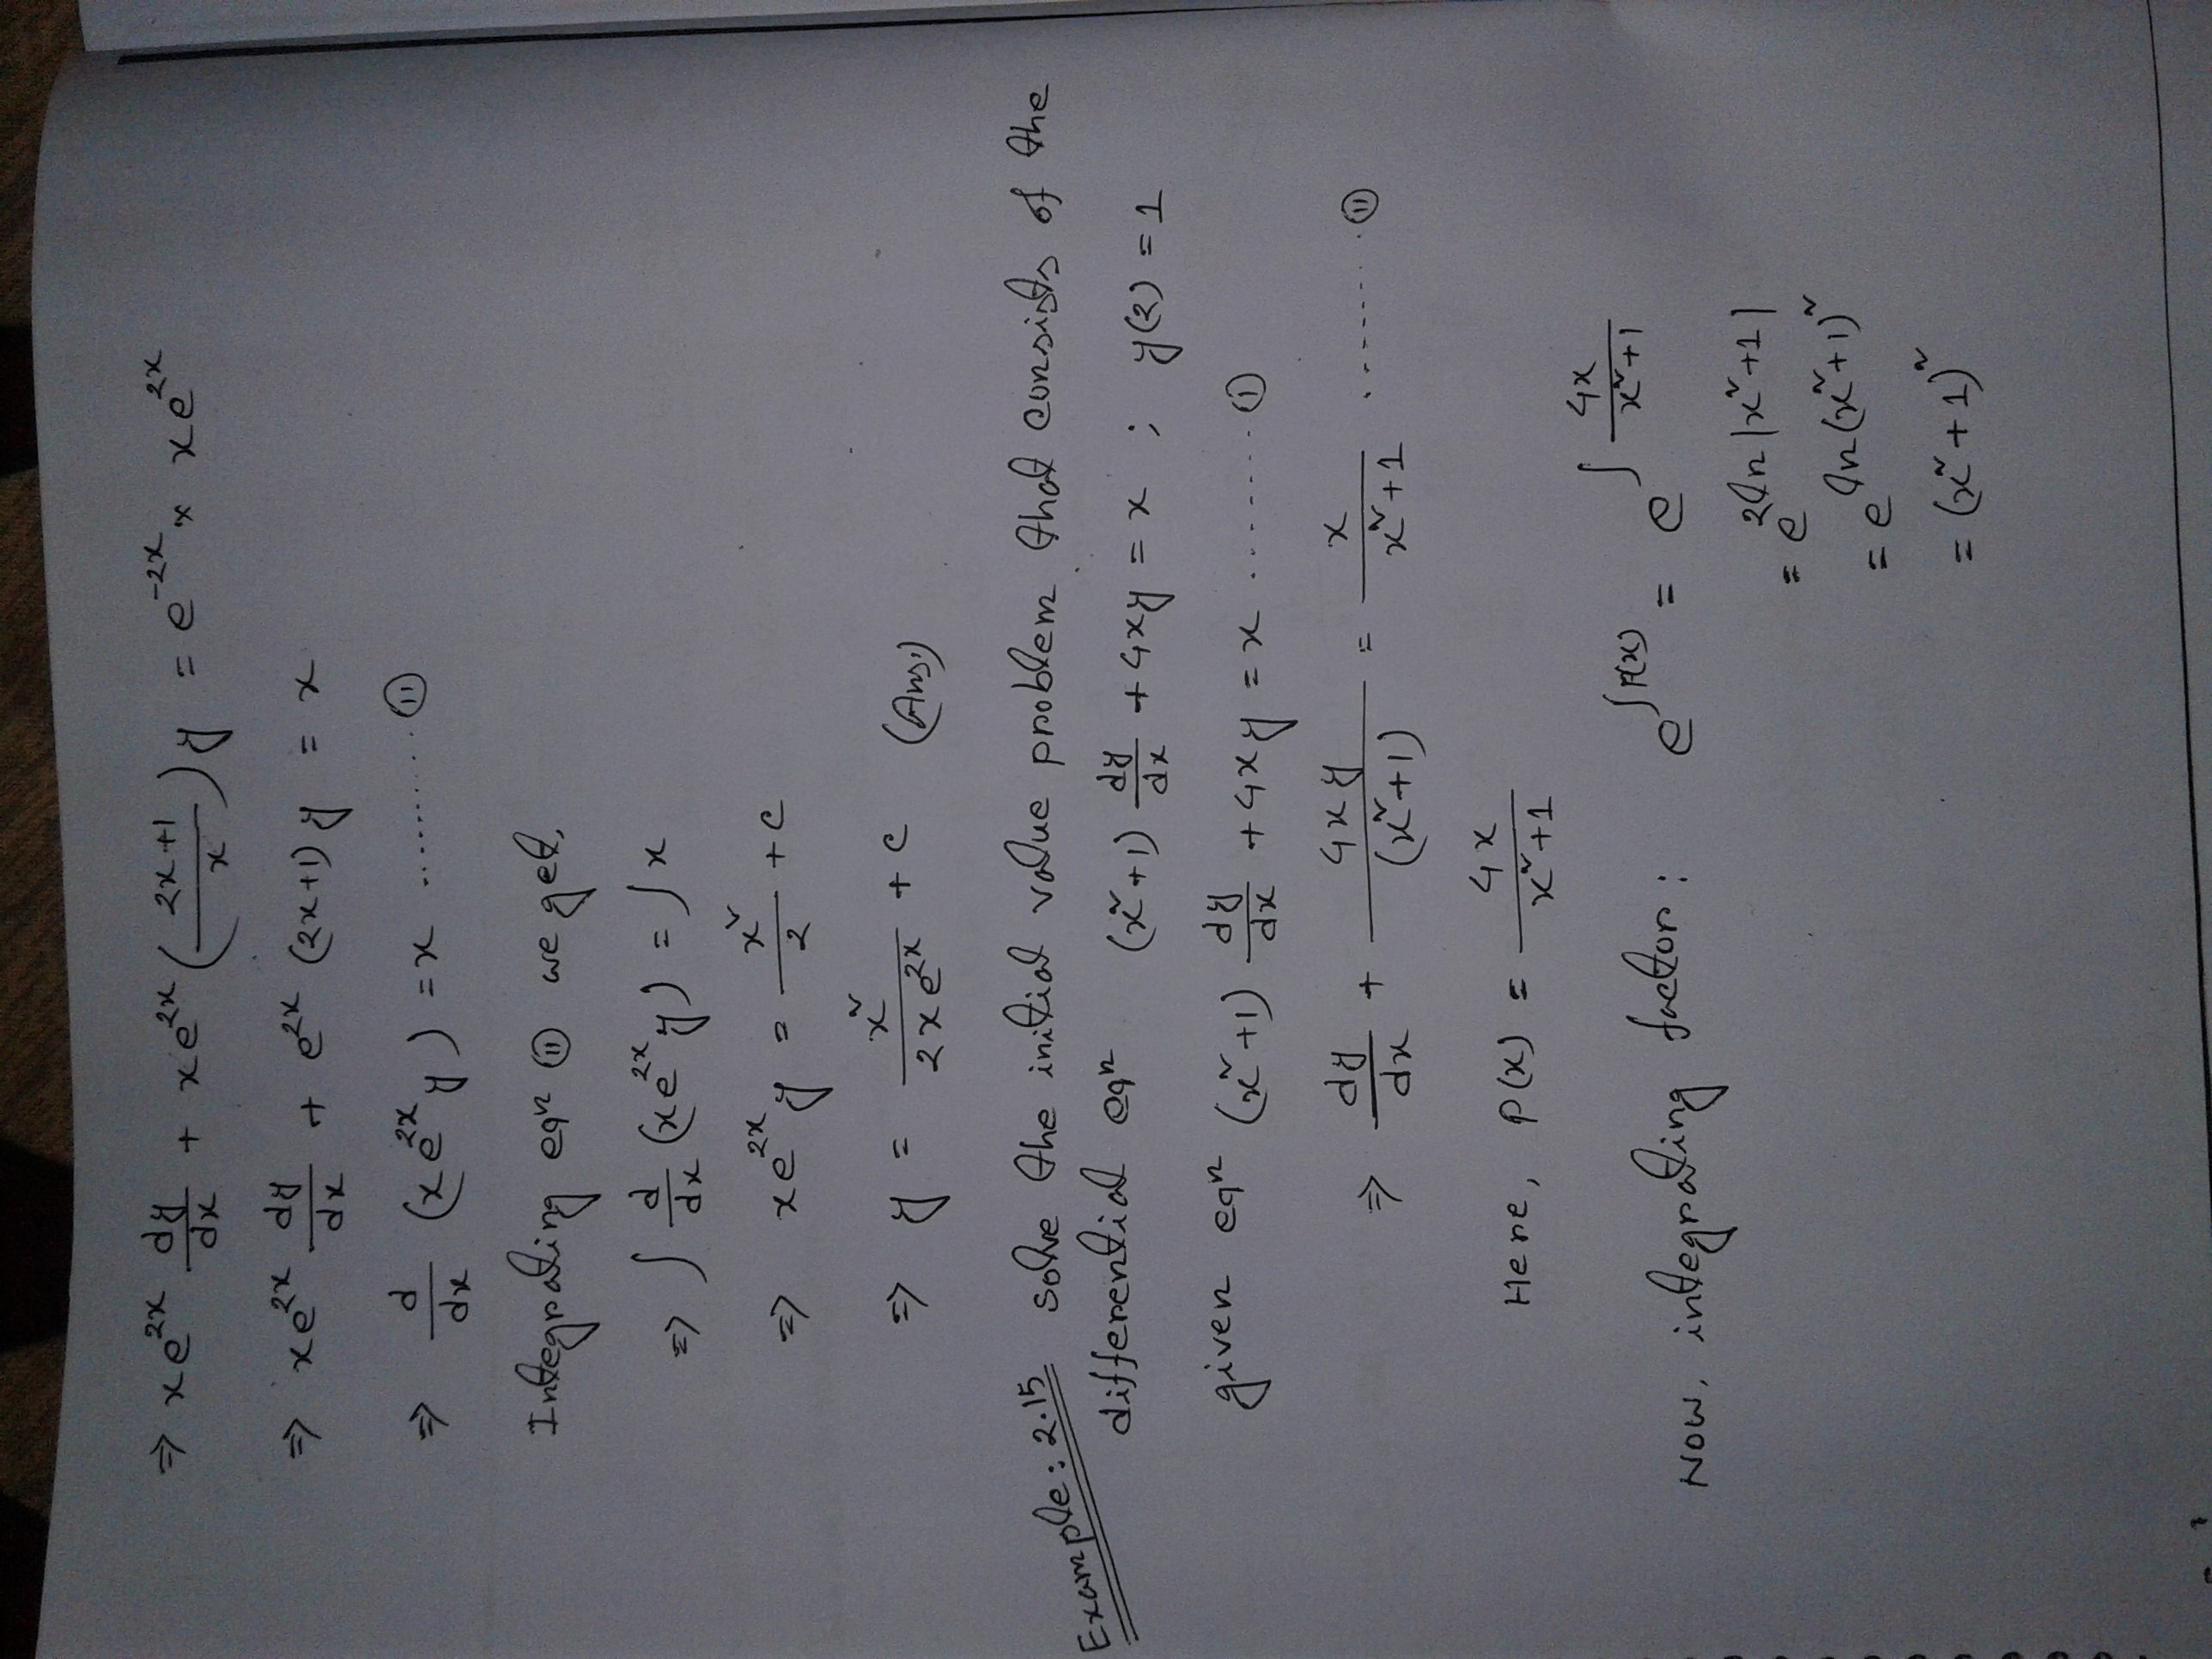 ⇒ xe^{2x} dy/dx + xe^{2x} ((2x+1)/x) y = e^{-2x} × xe^{2x}
⇒ xe^{2x} dy/dx + e^{2x} (2x+1) y = x
⇒ d/dx (xe^{2x} y) = x ......... (II)
Integrating eqn (II) we get,
⇒ ∫ d/dx (xe^{2x} y) = ∫ x
⇒ xe^{2x} y = x²/2 + c
⇒ y = x²/(2xe^{2x}) + c (Ans:)
Example: 2.15 solve the initial value problem that consists of the
differential eqn (x²+1) dy/dx + 4xy = x ; y(2) = 1
given eqn (x²+1) dy/dx + 4xy = x ........ (I)
⇒ dy/dx + 4xy/(x²+1) = x/(x²+1) ........ (II)
Here, P(x) = 4x/(x²+1)
Now, integrating factor: e^{∫P(x)} = e^{∫ 4x/(x²+1)}
= e^{2ln|x²+1|}
= e^{ln(x²+1)²}
= (x²+1)²